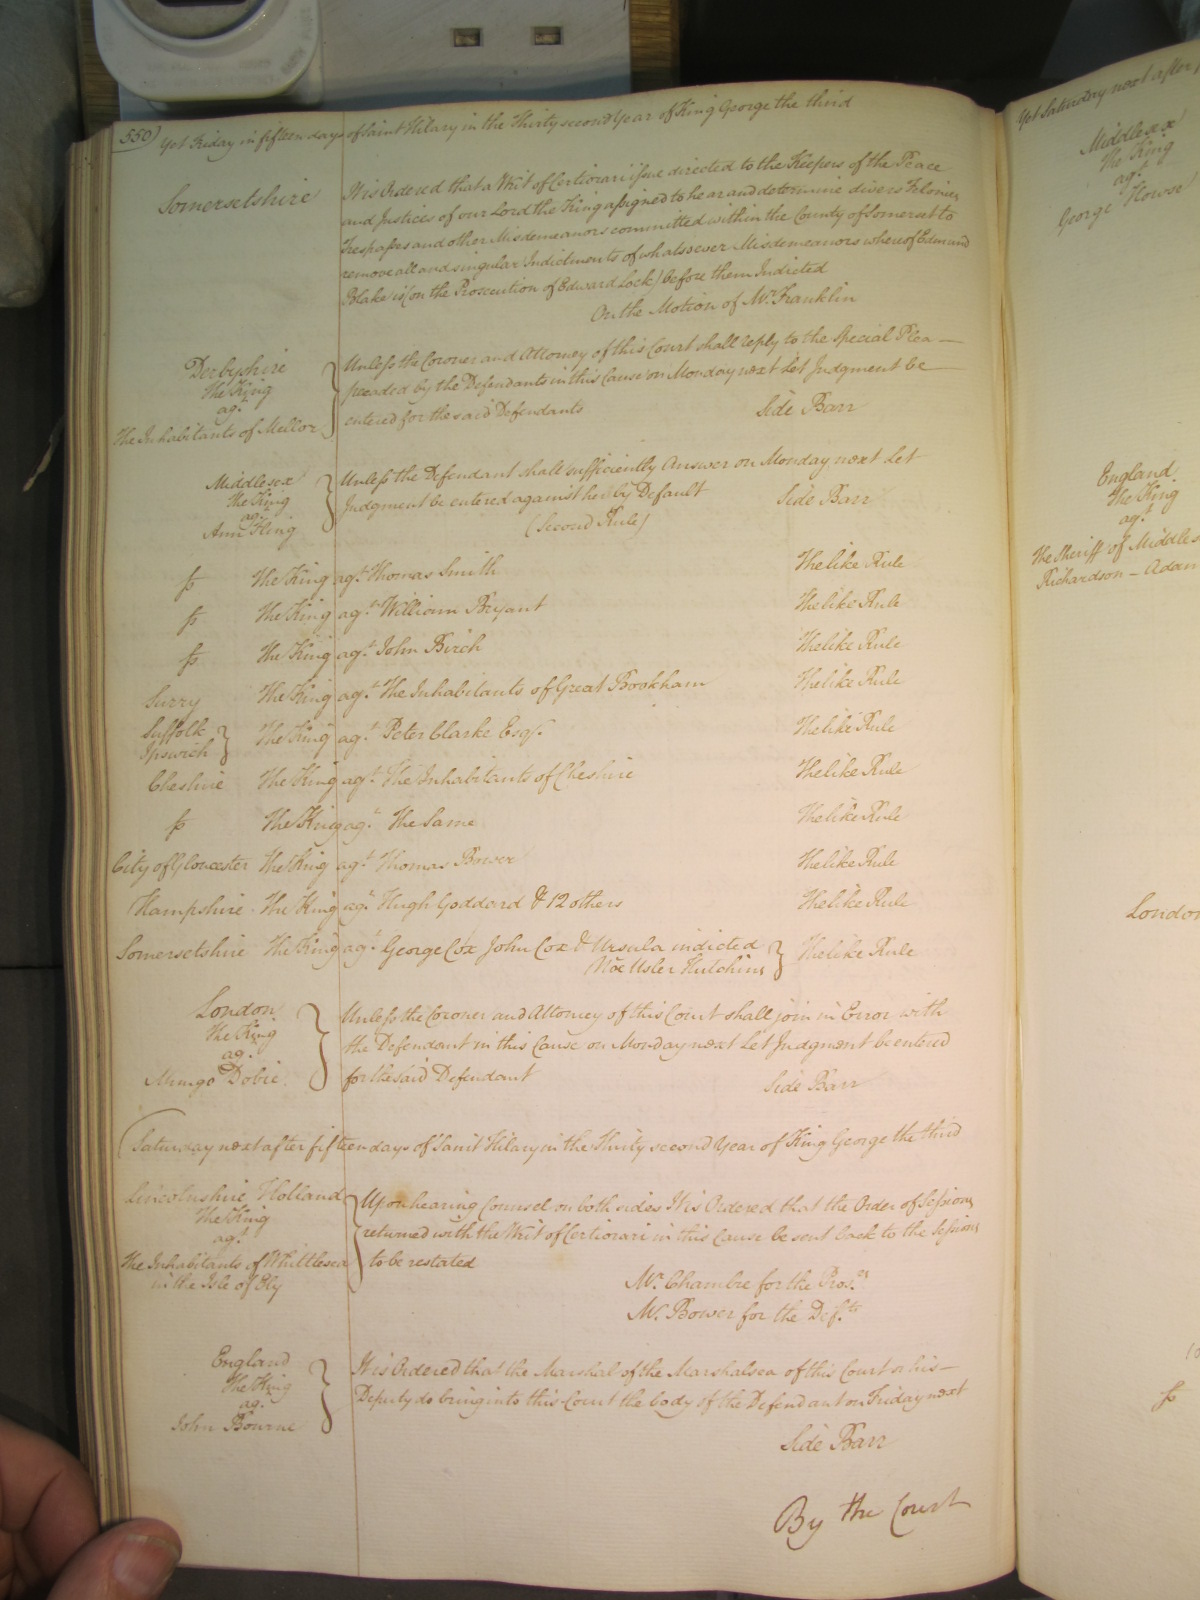 550) Yet Friday in fifteen days of Saint Hilary in the Thirty second Year of King George the third
Somersetshire
It is Ordered that a Writ of Certiorari issue directed to the Keepers of the Peace
and Justices of our Lord the King assigned to hear and determine divers Felonies
Trespasses and other Misdemeanors committed within the County of Somerset to
remove all and singular Indictments of whatsoever Misdemeanors whereof Edmund
Blake is (on the Prosecution of Edward Lock) before them Indicted
On the Motion of Mr. Franklin
Derbyshire
The King
agt.
The Inhabitants of Mellor
Unless the Coroner and Attorney of this Court shall reply to the Special Plea
pleaded by the Defendants in this Cause on Monday next Let Judgment be
entered for the said Defendants Side Barr
Middlesex
The King
agt.
Ann Fling
Unless the Defendant shall sufficiently Answer on Monday next Let
Judgment be entered against her by Default Side Barr
(Second Rule)
ss The King agt. Thomas Smith The like Rule
ss The King agt. William Bryant The like Rule
ss The King agt. John Birch The like Rule
Surry The King agt. The Inhabitants of Great Bookham The like Rule
Suffolk
Ipswich The King agt. Peter Clarke Esqr. The like Rule
Cheshire The King agt. The Inhabitants of Cheshire The like Rule
ss The King agt. The Same The like Rule
City of Gloucester The King agt. Thomas Bower The like Rule
Hampshire The King agt. Hugh Goddard & 12 others The like Rule
Somersetshire The King agt. George Cox John Cox & Ursula indicted The like Rule
Noe Usler Hutchins
London
The King
agt.
Mungo Dobie
Unless the Coroner and Attorney of this Court shall join in Error with
the Defendant in this Cause on Monday next Let Judgment be entered
for the said Defendant Side Barr
Saturday next after fifteen days of Saint Hilary in the Thirty second Year of King George the third
Lincolnshire Holland
The King
agt.
The Inhabitants of Whittlesea
in the Isle of Ely
Upon hearing Counsel on both sides It is Ordered that the Order of Sessions
returned with the Writ of Certiorari in this Cause be sent back to the Sessions
to be restated
Mr. Chambre for the Pros.
Mr. Bower for the Defts.
England
The King
agt.
John Bourne
It is Ordered that the Marshal of the Marshalsea of this Court or his
Deputy do bring into this Court the body of the Defendant on Friday next
Side Barr
By the Court
Yet Saturday next after
Middlesex
The King
agt.
George Howse
England
The King
agt.
The Sheriff of
Richardson - Adam
London
ss